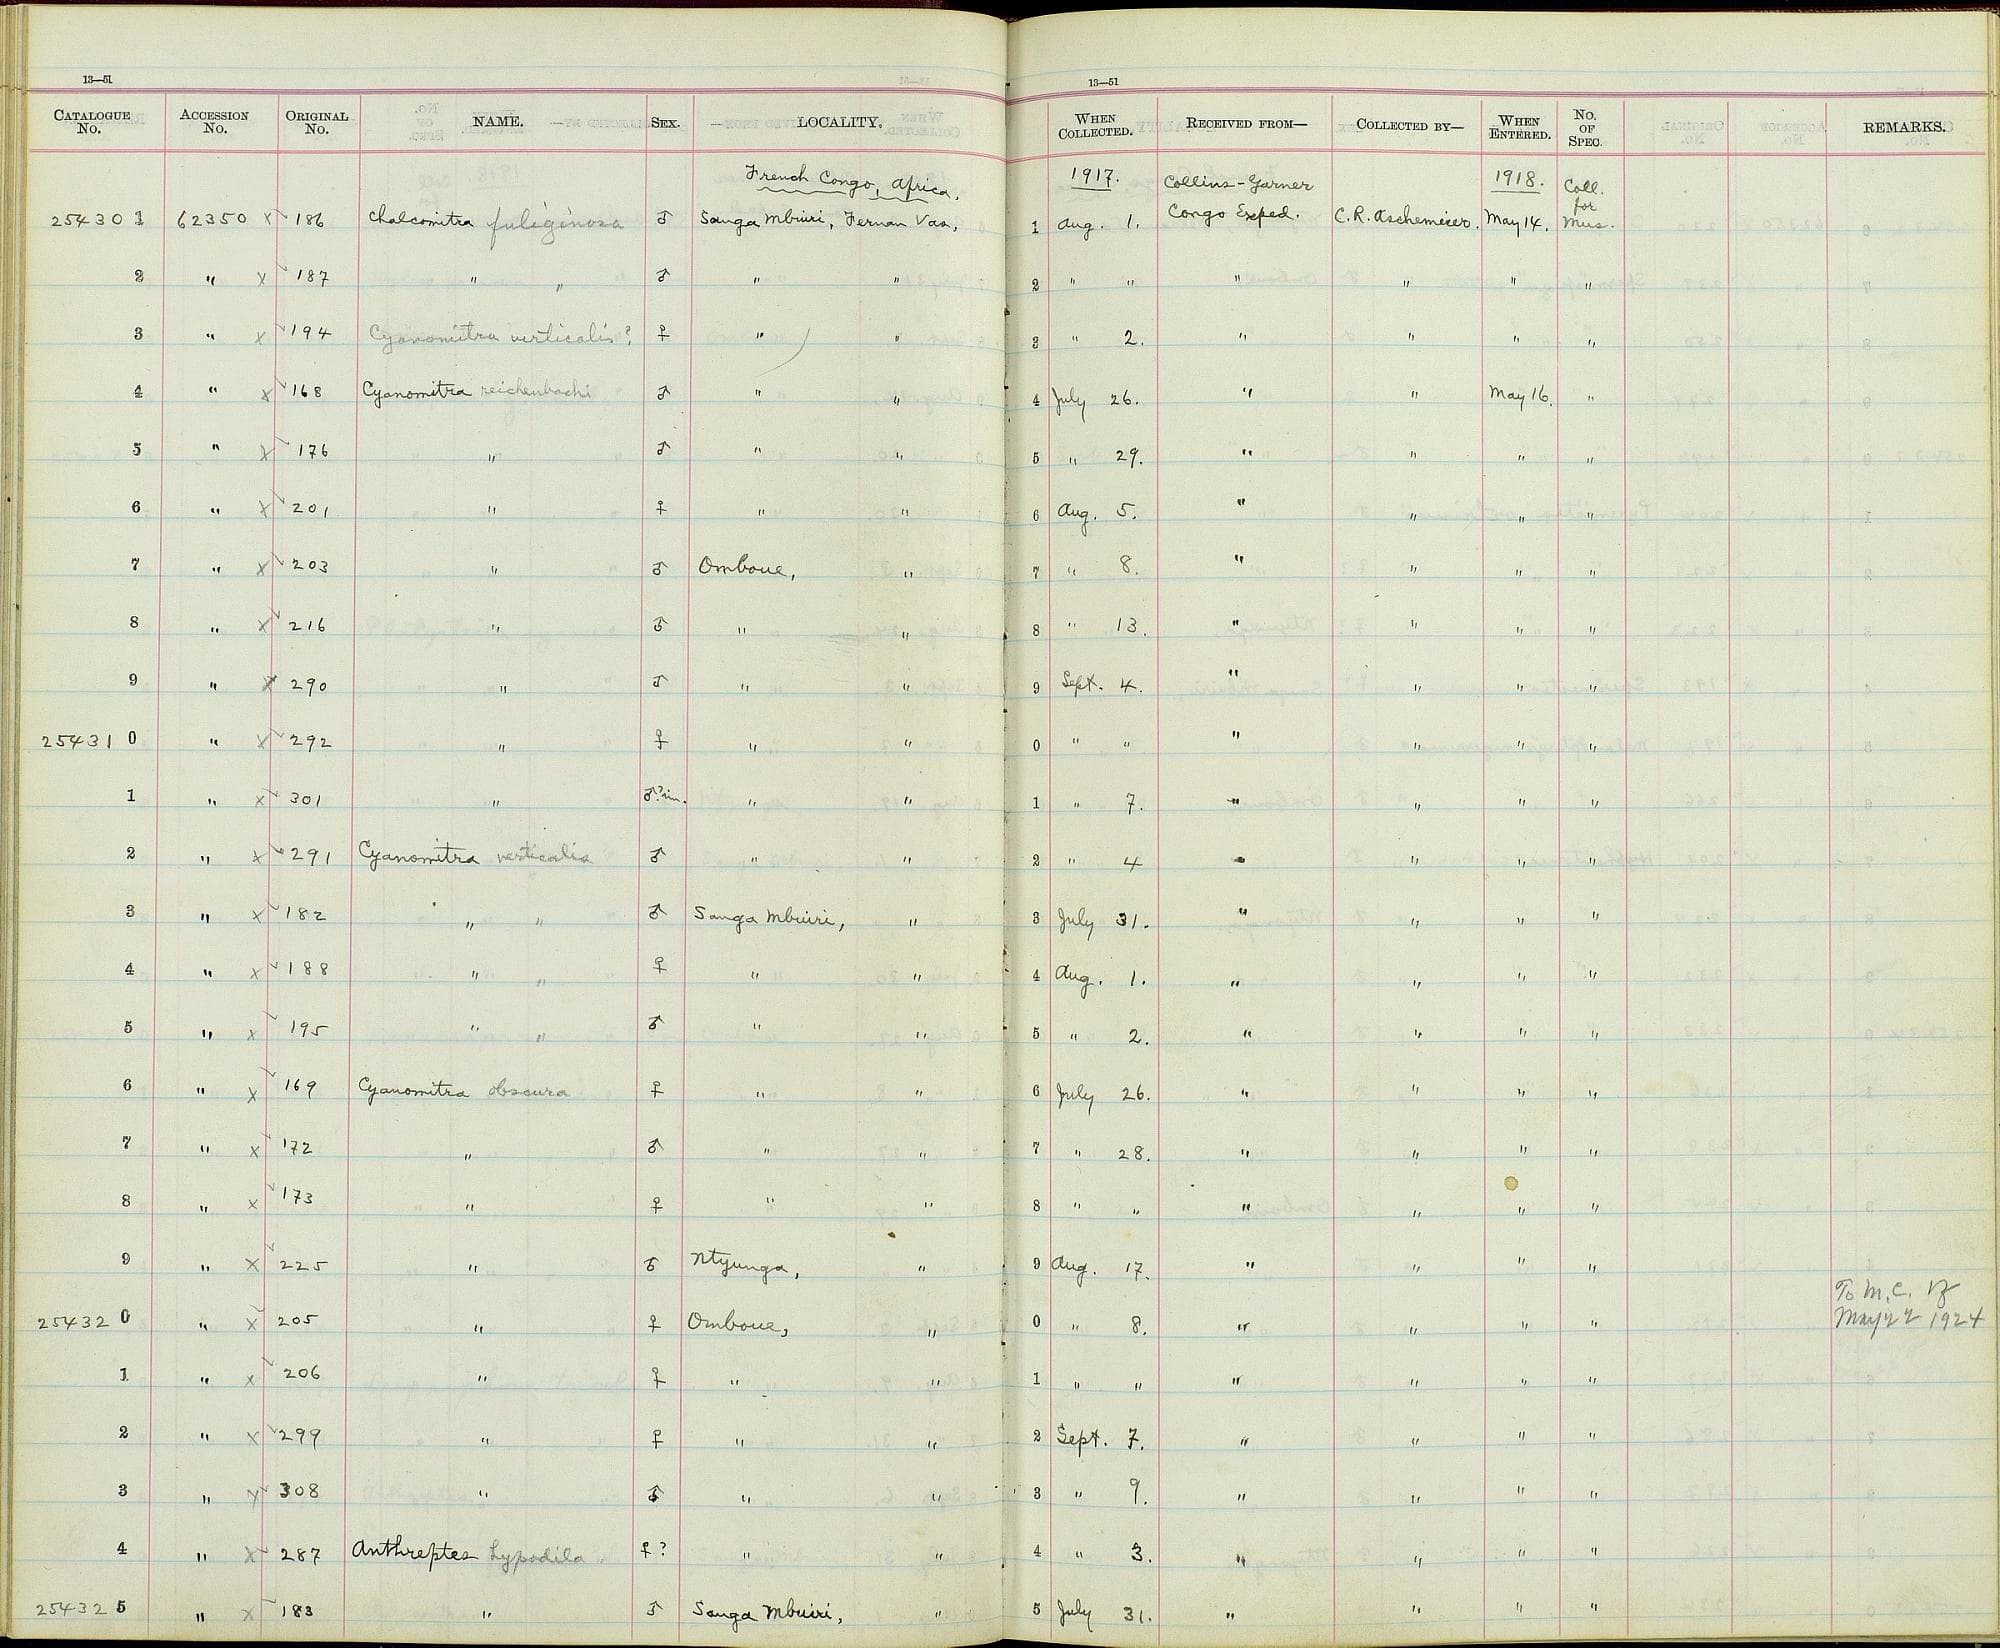 13—51
13—51
CATALOGUE No. ACCESSION No. ORIGINAL No. NAME. SEX. LOCALITY. WHEN COLLECTED. RECEIVED FROM— COLLECTED BY— WHEN ENTERED. No. OF SPEC. REMARKS.
French Congo, Africa. 1917. Collins-Garner 1918. Coll. for
254301 62350 x 186 Chalcomitra fuliginosa ♂ Sanga Mbuiri, Fernan Vas, 1 Aug. 1. Congo Exped. C.R. Aschemeier. May 14. Mus.
2 " x 187 " " ♂ " " 2 " " " " " "
3 " x 194 Cyanomitra verticalis? ♀ " " 3 " 2. " " " "
4 " x 168 Cyanomitra reichenbachi ♂ " " 4 July 26. " " May 16. "
5 " x 176 " ♂ " " 5 " 29. " " " "
6 " x 201 " ♀ " " 6 Aug. 5. " " " "
7 " x 203 " ♂ Omboue, " 7 " 8. " " " "
8 " x 216 " ♂ " " 8 " 13. " " " "
9 " x 290 " ♂ " " 9 Sept. 4. " " " "
254310 " x 292 " ♀ " " 0 " " " " " "
1 " x 301 " ♂? im. " " 1 " 7. " " " "
2 " x 291 Cyanomitra verticalis ♂ " " 2 " 4 " " " "
3 " x 182 " " ♂ Sanga Mbuiri, " 3 July 31. " " " "
4 " x 188 " " ♀ " " 4 Aug. 1. " " " "
5 " x 195 " " ♂ " " 5 " 2. " " " "
6 " x 169 Cyanomitra obscura ♀ " " 6 July 26. " " " "
7 " x 172 " ♂ " " 7 " 28. " " " "
8 " x 173 " ♀ " " 8 " " " " " "
9 " x 225 " ♂ Ntyunga, " 9 Aug. 17. " " " "
To M.C.
254320 " x 205 " ♀ Omboue, " 0 " 8. " " " " May 22 1924
1 " x 206 " ♀ " " 1 " " " " " "
2 " x 299 " ♀ " " 2 Sept. 7. " " " "
3 " x 308 " ♂ " " 3 " 9. " " " "
4 " x 287 Anthreptes hypodila ♀? " " 4 " 3. " " " "
254325 " x 183 " ♂ Sanga Mbuiri, " 5 July 31. " " " "